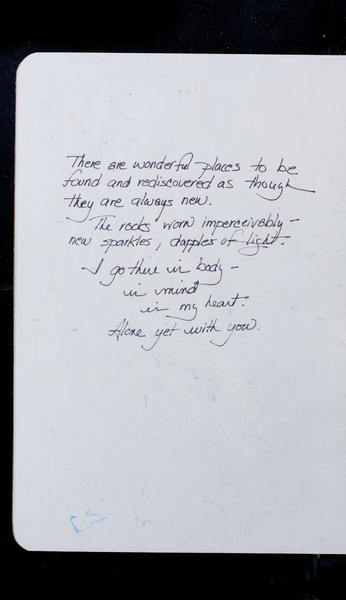 There are wonderful places to be
found and rediscovered as though
they are always new.
The rocks worn imperceivably -
new sparkles, dapples of light.
I go there in body -
in mind
in my heart.
Alone yet with you.